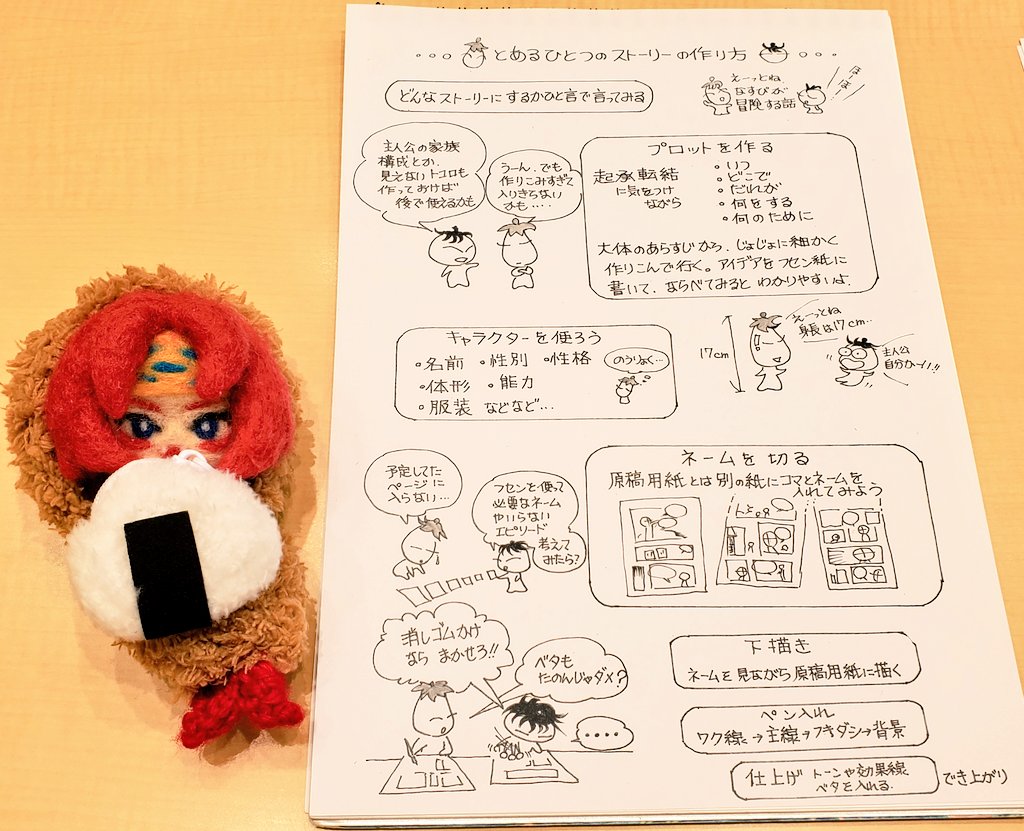 ・・・とあるひとつのストーリーの作り方・・・
どんなストーリーにするかひと言で言ってみる
えーっとね
なすびが
冒険する話
ほーほー
主人公の家族
構成とか、
見えないトコロも
作っておけば
後で使えるかも
うーん、でも
作りこみすぎて
入りきらない
かも・・・・
プロットを作る
起承転結
に気をつけ
ながら
・いつ
・どこで
・だれが
・何をする
・何のために
大体のあらすじから、じょじょに細かく
作りこんで行く。アイデアをフセン紙に
書いて、ならべてみるとわかりやすいよ.
キャラクターを使ろう
・名前 ・性別 ・性格
・体形 ・能力
・服装 などなど…
のうりょく…
17cm
えーっとね
身長は17cm…
主人公
自分かーい!!
予定してた
ページに
入らない…
フセンを使って
必要なネーム
やいらない
エピソード
考えて
みたら?
ネームを切る
原稿用紙とは別の紙にコマとネームを
入れてみよう
消しゴムかけ
なら まかせろ!!
ベタも
たのんじゃダメ?
・・・・
下描き
ネームを見ながら原稿用紙に描く
ペン入れ
ワク線→主線→フキダシ→背景
仕上げ トーンや効果線
ベタを入れる.
でき上がり